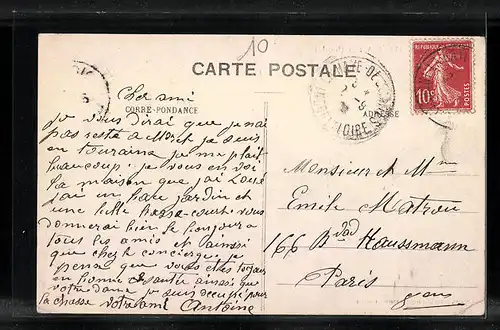 10
CARTE POSTALE
CORRE·PONDANCE
ADRESSE
REPUBLIQUE
10c
POSTES
LOIRE
Cher ami
je vous dirai que je n'ai
pas resté a je suis
en touraine je me plait
beaucoup je vous en voi
la maison que j'ai Loué
j'ai un parc jardin et
une belle Basse-court vous
donnerai bien le bonjour a
tous les amis et l'ainsi
que chez le concierge je
pense que vous etes toujours
en bonne santée ainsi que
votre dame je suis occupé pour
la chasse votre ami Antoine
Monsieur et Mme
Emile Matrou
166 Bvd Haussmann
Paris